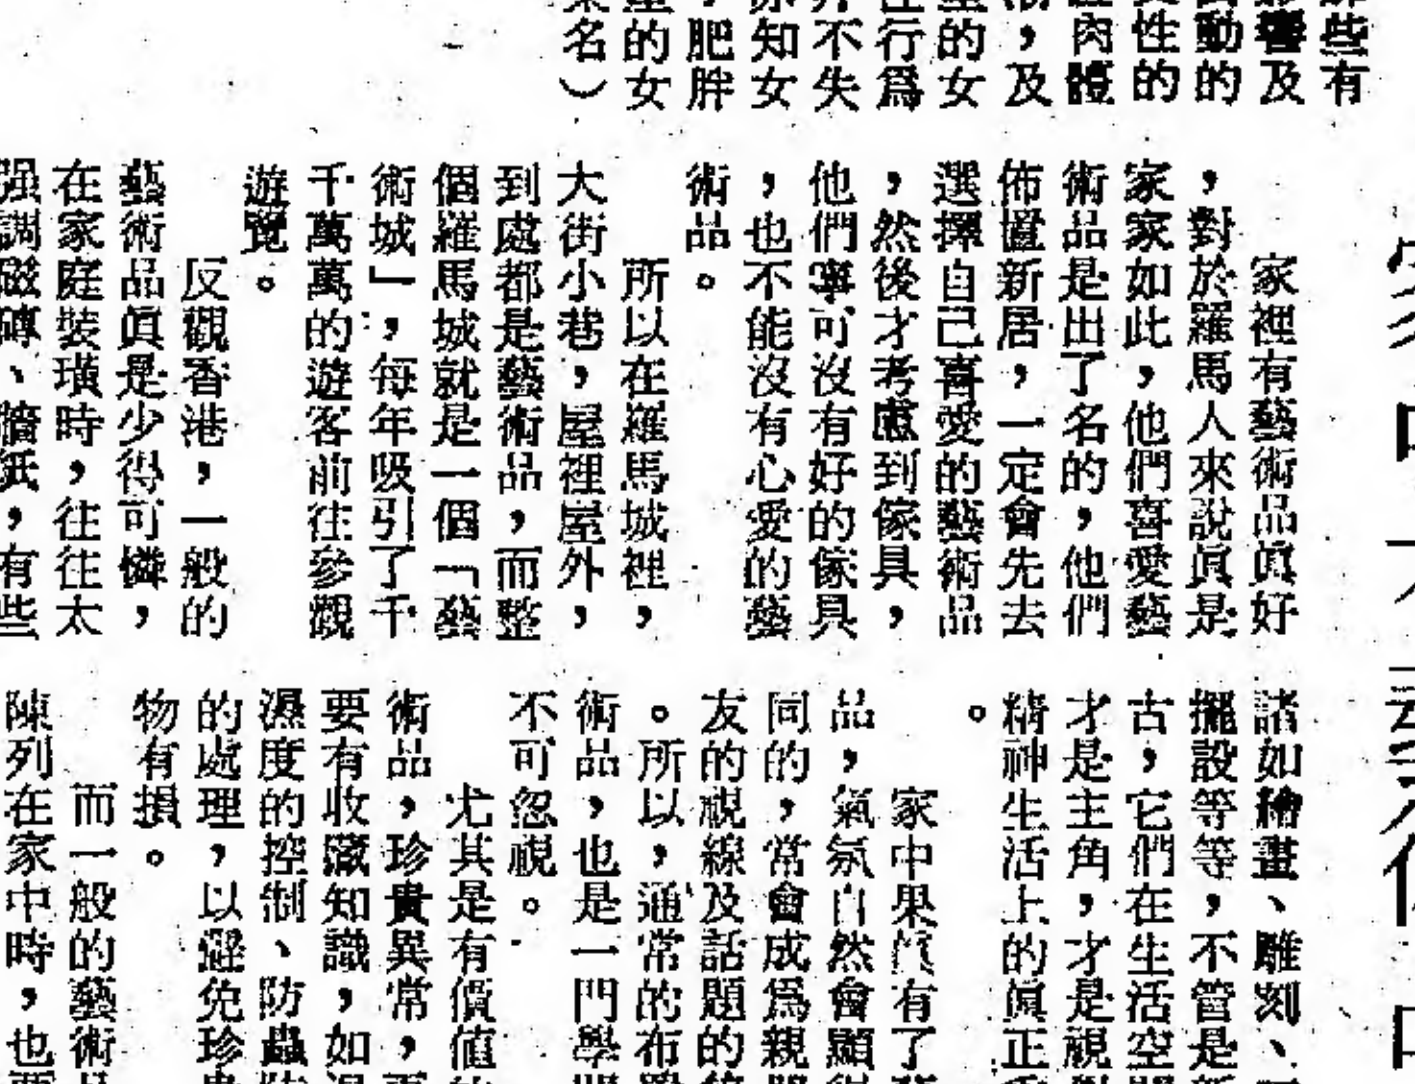 些有
響及
動的
性的
肉體
，及
的女
行爲
不失
知女
肥胖
的女
名）
家裡有藝術品眞好
，對於羅馬人來說眞是
家家如此，他們喜愛藝
術品是出了名的，他們
佈置新居，一定會先去
選擇自己喜愛的藝術品
，然後才考慮到傢具，
他們寧可沒有好的傢具
，也不能沒有心愛的藝
術品。
所以在羅馬城裡，
大街小巷，屋裡屋外，
到處都是藝術品，而整
個羅馬城就是一個「藝
術城」，每年吸引了千
千萬萬的遊客前往參觀
遊覽。
反觀香港，一般的
藝術品眞是少得可憐，
在家庭裝璜時，往往太
强調磁磚、牆紙，有些
諸如繪畫、雕刻、
擺設等等，不管是
古，它們在生活空
才是主角，才是視
精神生活上的眞正
。
家中果眞有了
品，氣氛自然會顯
同的，常會成爲親
友的視線及話題的
。所以，通常的布
術品，也是一門學
不可忽視。
尤其是有價值
術品，珍貴異常，
要有收藏知識，如
濕度的控制、防蟲
的處理，以避免珍
物有損。
而一般的藝術
陳列在家中時，也